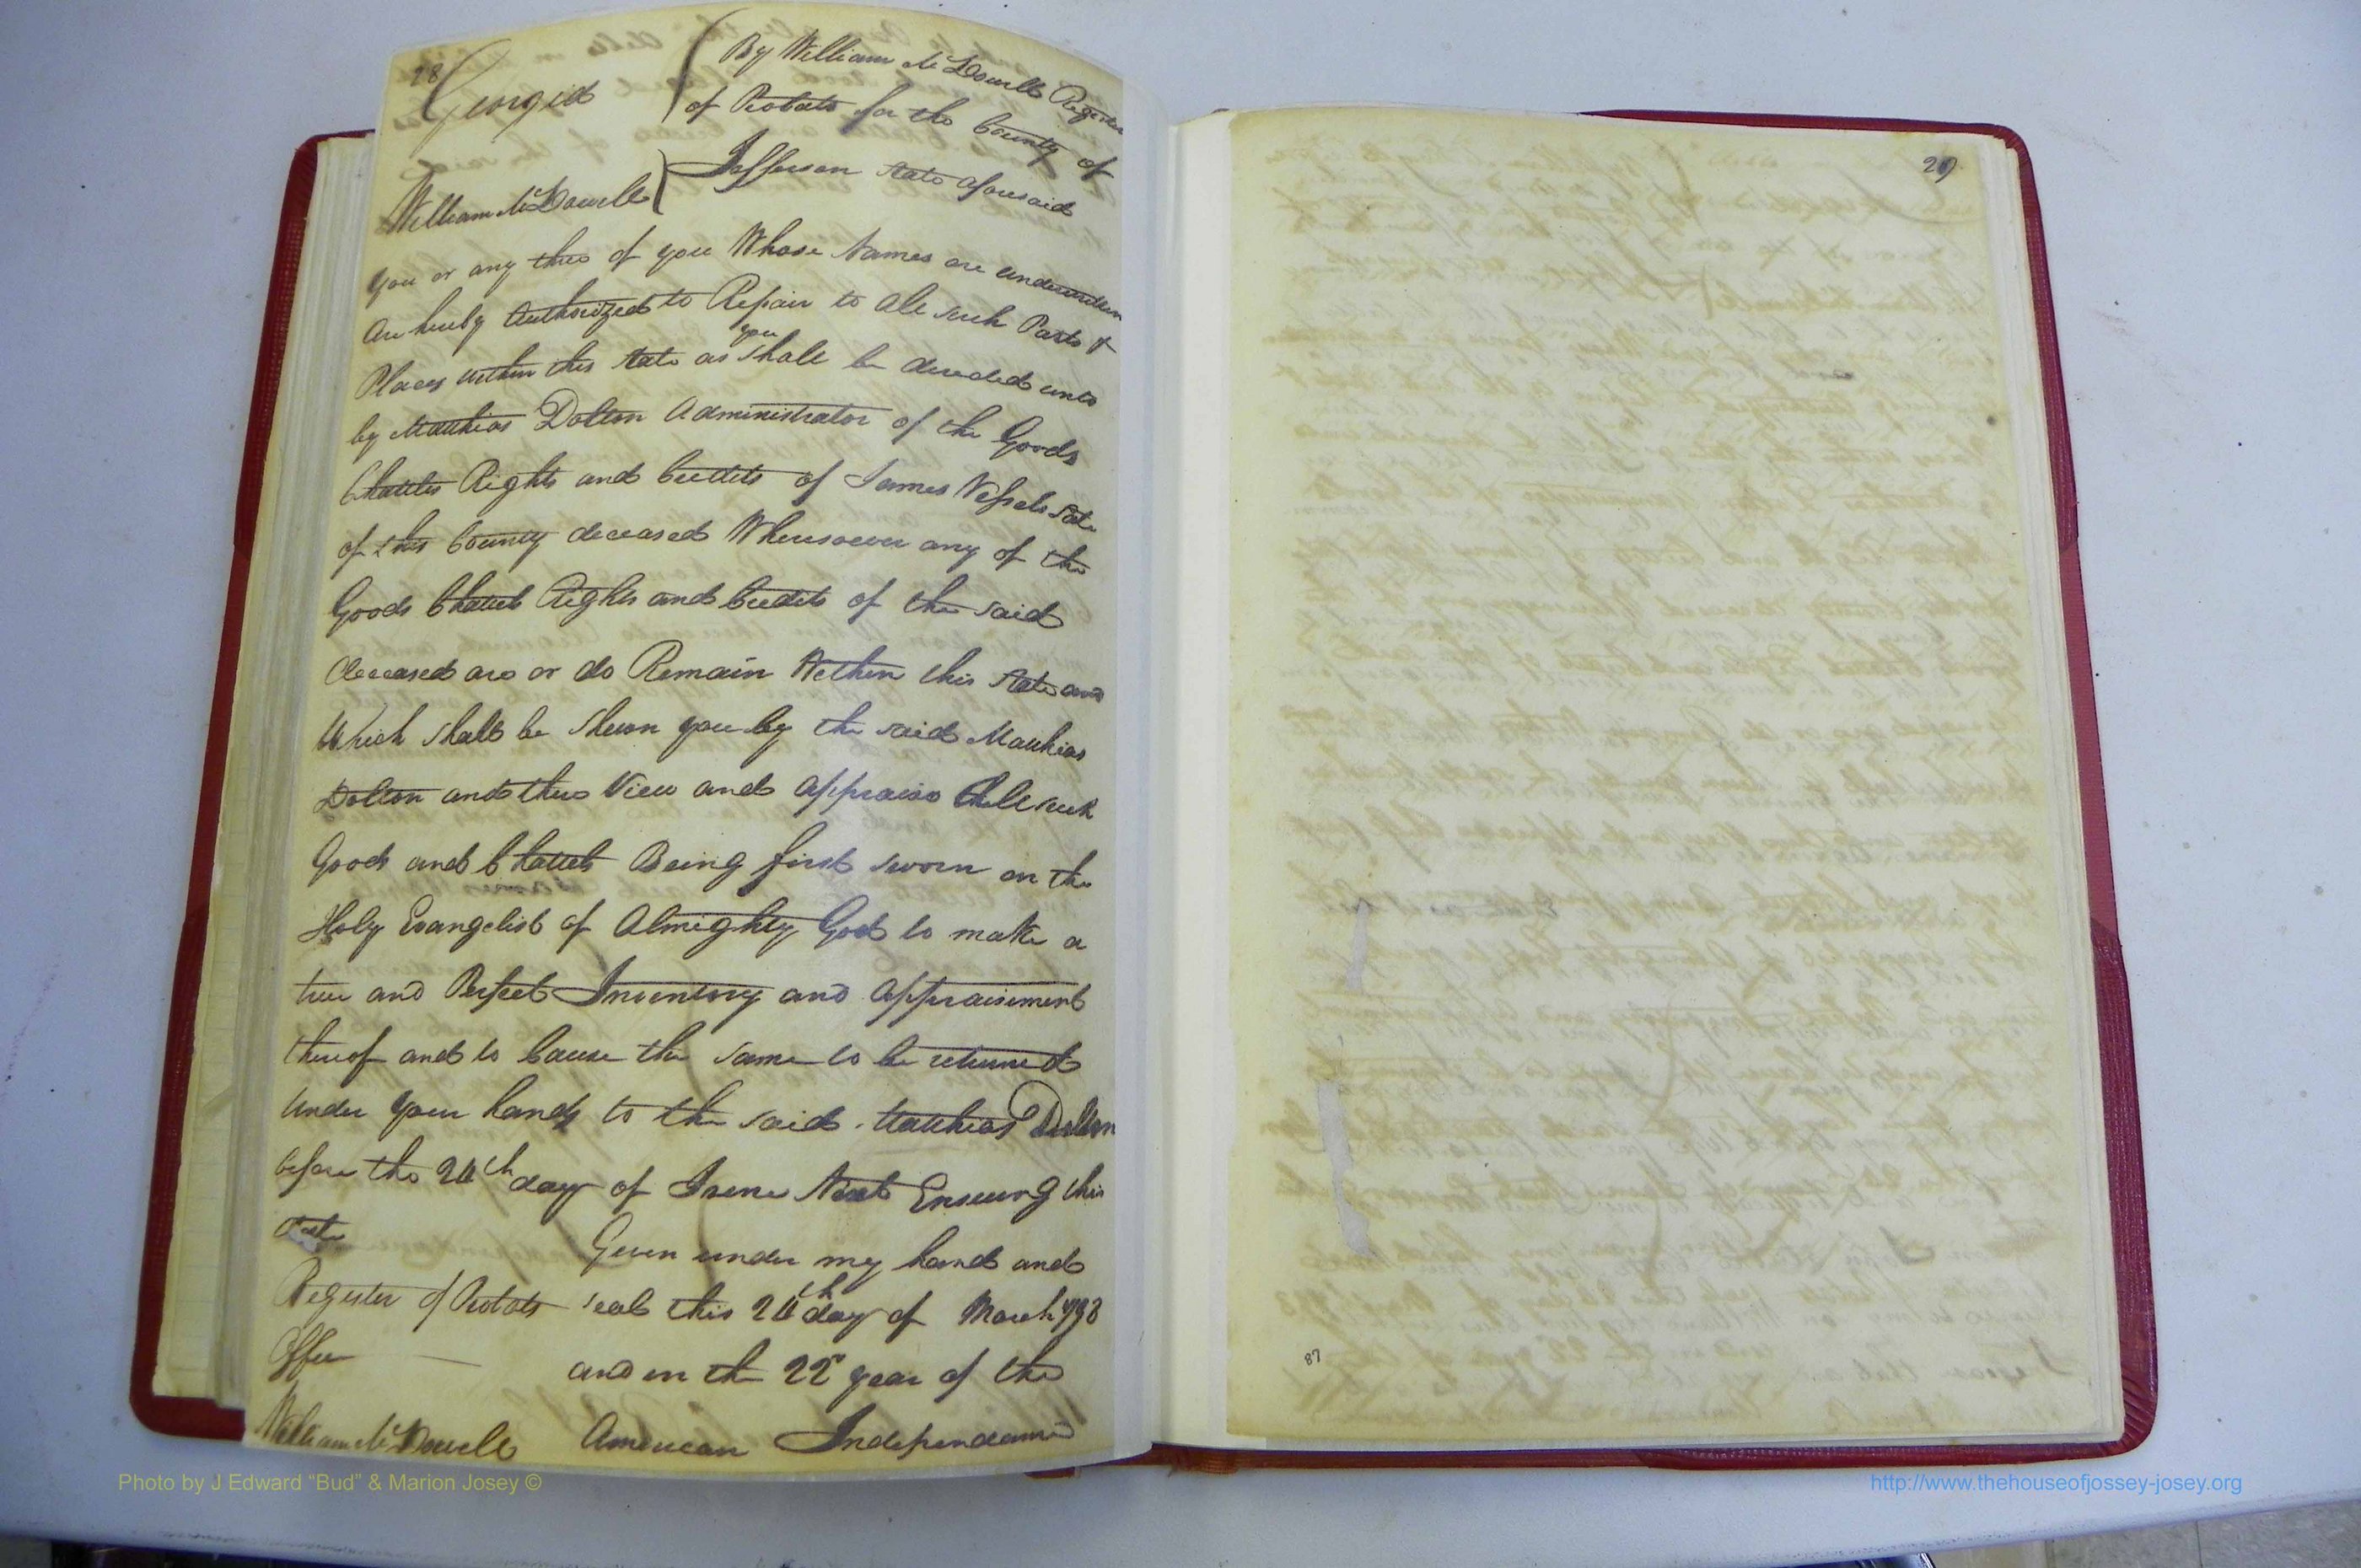 28
Georgia
By William McDowell Register
of Probate for the County of
Jefferson State aforesaid
William McDowell
You or any three of you Whose Names are underwritten
Are hereby Authorized to Repair to all such Parts &
Places within this State as you shall be directed unto
by Matthias Dolton Administrator of the Goods
Chattles Rights and Credits of James Vessels late
of this County deceased Wheresoever any of the
Goods Chattels Rights and Credits of the said
deceased are or do Remain Within this State and
Which shall be Shewn you by the said Matthias
Dolton and there View and appraise all such
Goods and Chattels Being first sworn on the
Holy Evangelist of Almighty God to make a
true and Perfect Inventory and appraisement
thereof and to Cause the same to be returned
Under your hands to the said Matthias Dolton
before the 24th day of June Next Ensuing this
date
Given under my hand and
Register of Probats seal this 24th day of March 1798
Office
and in the 22 year of the
William McDowell American Independance
29
87
Photo by J Edward “Bud” & Marion Josey ©
http://www.thehouseofjossey-josey.org